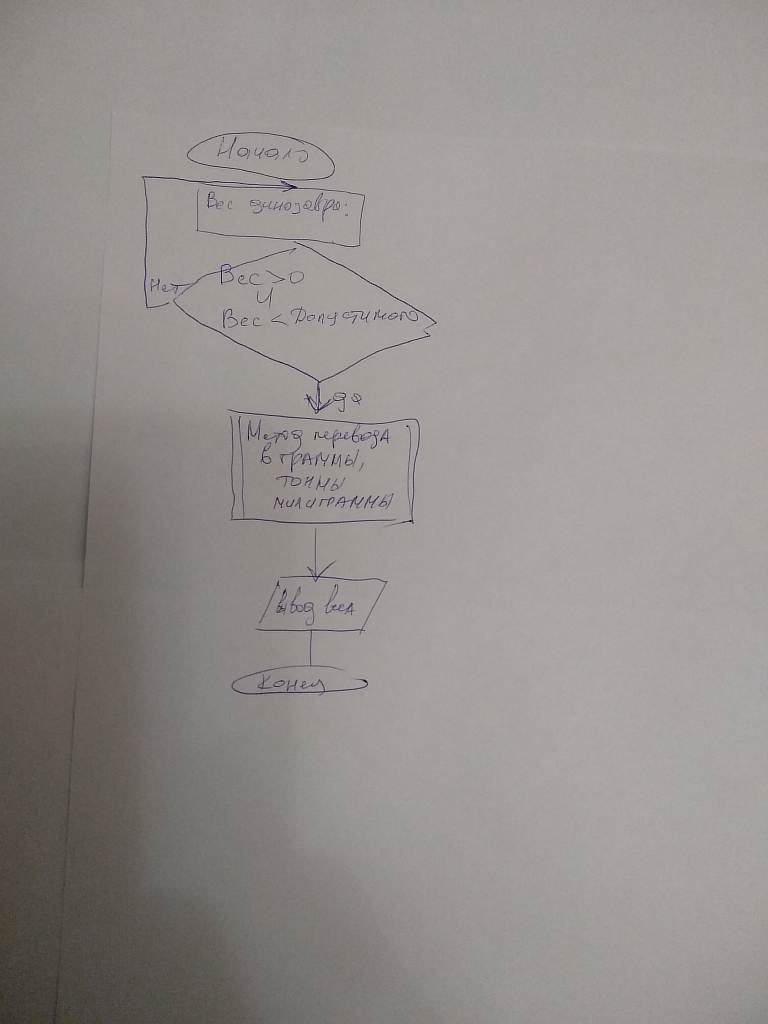 Начало
Вес динозавра:
Нет
Вес > 0
И
Вес < Допустимого
да
Метод перевода
в граммы,
тонны
милиграммы
Вывод веса
Конец